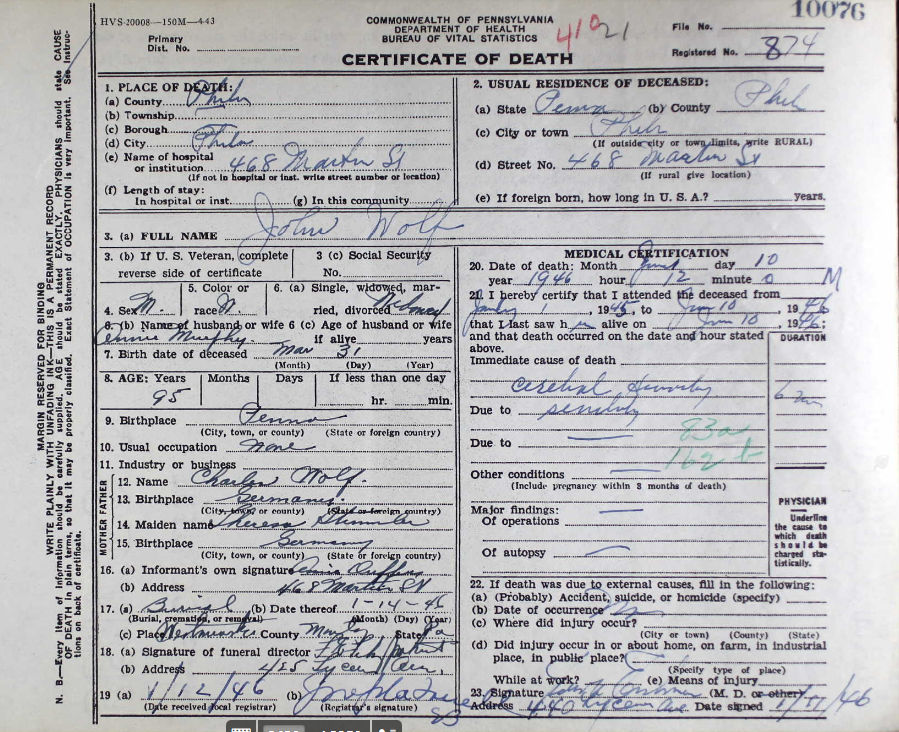 HVS-20008—150M—4-43
COMMONWEALTH OF PENNSYLVANIA
DEPARTMENT OF HEALTH
BUREAU OF VITAL STATISTICS
CERTIFICATE OF DEATH
Primary
Dist. No.
10076
File No.
Registered No. 874
MARGIN RESERVED FOR BINDING
WRITE PLAINLY WITH UNFADING INK—THIS IS A PERMANENT RECORD
N. B.—Every item of information should be carefully supplied. AGE should be stated EXACTLY. PHYSICIANS should state CAUSE
OF DEATH in plain terms, so that it may be properly classified. Exact Statement of OCCUPATION is very important. See Instruc-
tions on back of certificate.
1. PLACE OF DEATH:
(a) County Phila
(b) Township
(c) Borough
(d) City Phila
(e) Name of hospital
or institution 468 Martin St
(If not in hospital or inst. write street number or location)
(f) Length of stay:
In hospital or inst. (g) In this community
2. USUAL RESIDENCE OF DECEASED:
(a) State Penna (b) County Phil
(c) City or town Phila
(If outside city or town limits, write RURAL)
(d) Street No. 468 Martin St
(If rural give location)
(e) If foreign born, how long in U. S. A.? years.
3. (a) FULL NAME John Wolf
3. (b) If U. S. Veteran, complete
reverse side of certificate
3 (c) Social Security
No.
4. Sex M.
5. Color or
race
6. (a) Single, widowed, mar-
ried, divorced
6. (b) Name of husband or wife 6 (c) Age of husband or wife
Annie Murphy. if alive years
7. Birth date of deceased Mar 31
(Month) (Day) (Year)
8. AGE: Years Months Days If less than one day
95 hr. min.
9. Birthplace Penna
(City, town, or county) (State or foreign country)
10. Usual occupation none
11. Industry or business
FATHER
12. Name Charles Wolf.
13. Birthplace Germany.
(City, town, or county) (State or foreign country)
MOTHER
14. Maiden name Theresa
15. Birthplace Germany
(City, town, or county) (State or foreign country)
16. (a) Informant's own signature
(b) Address 468 Martin St
17. (a) Burial (b) Date thereof 1-14-46
(Burial, cremation, or removal) (Month) (Day) (Year)
(c) Place Westminster County State Pa
18. (a) Signature of funeral director
(b) Address 425 Lyceum Ave,
19 (a) 1/12/46 (b)
(Date received local registrar) (Registrar's signature)
MEDICAL CERTIFICATION
20. Date of death: Month day 10
year 1946 hour 12 minute 0 M
21. I hereby certify that I attended the deceased from
1, 1945, to Jan 10, 1946
that I last saw h alive on Jan 10, 1946;
and that death occurred on the date and hour stated
above.
DURATION
Immediate cause of death
cerebral
Due to senility
83a
Due to
162 b
Other conditions
(Include pregnancy within 3 months of death)
Major findings:
Of operations
Of autopsy
PHYSICIAN
Underline
the cause to
which death
should be
charged sta-
tistically.
22. If death was due to external causes, fill in the following:
(a) (Probably) Accident, suicide, or homicide (specify)
(b) Date of occurrence
(c) Where did injury occur?
(City or town) (County) (State)
(d) Did injury occur in or about home, on farm, in industrial
place, in public place?
(Specify type of place)
While at work? (e) Means of injury
23. Signature (M. D. or other)
Address 440 Lyceum Ave Date signed